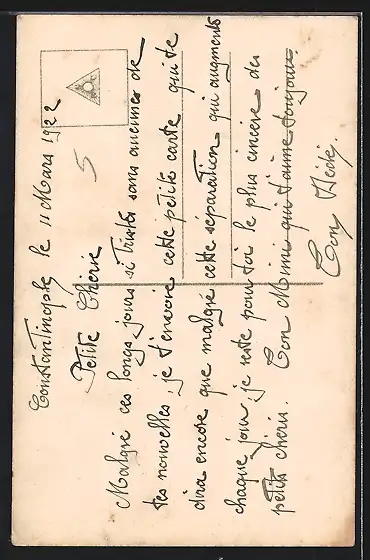 Constantinople le 11 Mars 1922
5
Petite Chérie
Malgré ces longs jours si tristes sans aucunes de
tes nouvelles je t'envoie cette petite carte qui te
dira encore que malgré cette séparation qui augmente
chaque jour, je reste pour toi le plus sincère des
petits chéris. Ton Mimi qui t'aime toujours.
Ton